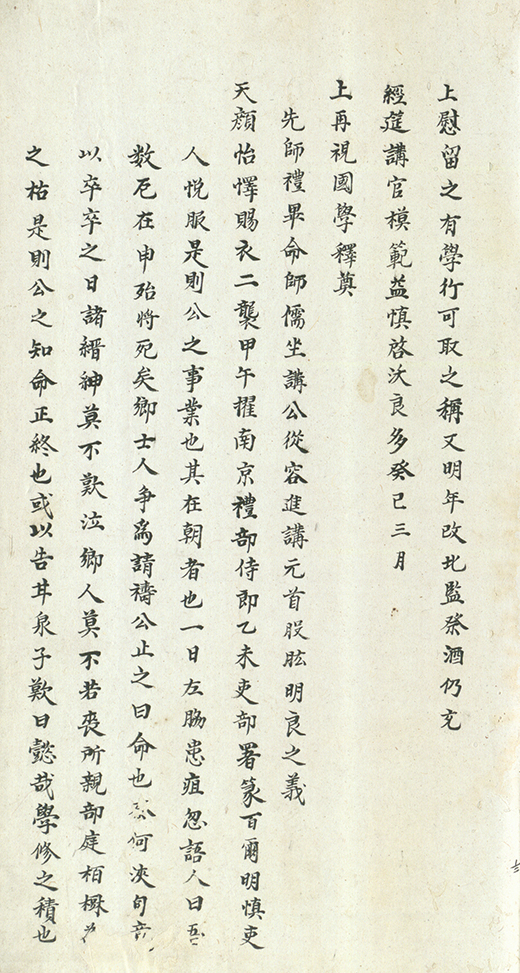 上慰留之有學行可取之稱又明年改北監祭酒仍充
經筵講官模範益慎啓沃良多癸巳三月
上再視國學釋奠
先師禮畢命師儒坐講公從容進講元首股肱明良之義
天顏怡懌賜衣二襲甲午擢南京禮部侍郎乙未吏部署篆百爾明慎吏
人悅服是則公之事業也其在朝者也一日左脇患疽忽語人曰吾
数厄在申殆將死矣鄉士人争爲請禱公止之曰命也何浹旬
以卒卒之日諸縉紳莫不歎泣鄉人莫不若喪所親部庭栢樹
之枯是則公之知命正終也或以告甘泉子歎曰懿哉學修之積也